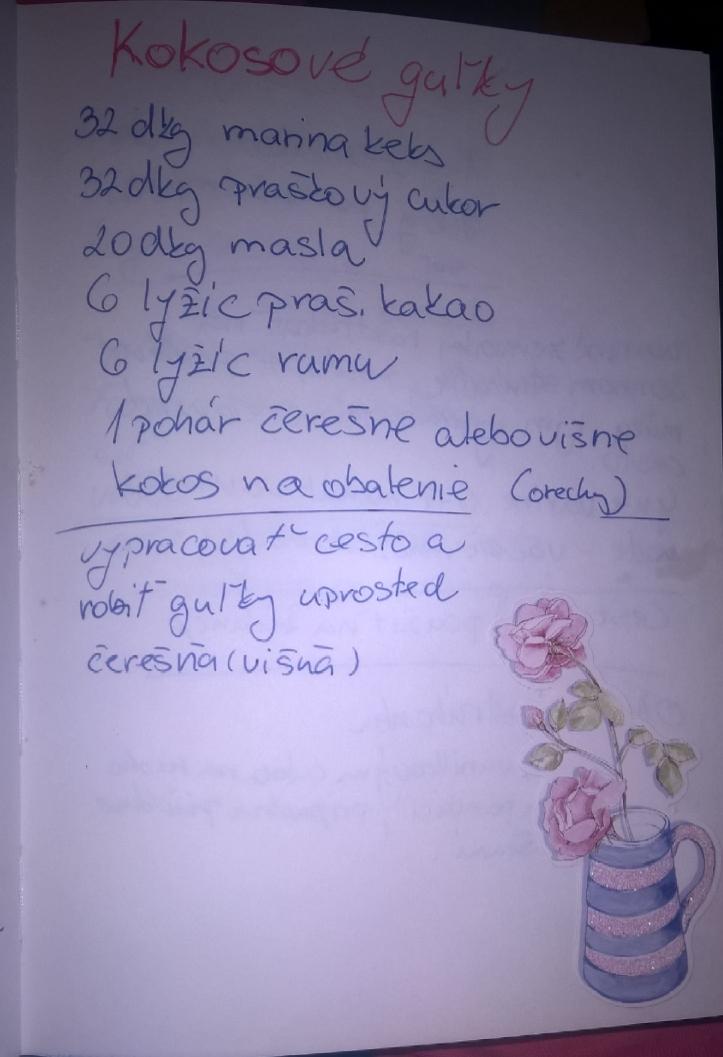 Kokosové guľky
32 dkg marina keks
32 dkg práškový cukor
20 dkg masla
6 lyžíc praš. kakao
6 lyžíc rumu
1 pohár čerešne alebo višne
kokos na obalenie (orechy)
vypracovať cesto a
robiť guľky uprosted
čerešňa (višňa)